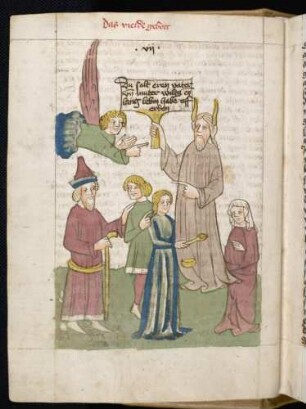 Das vierde gebott
·vij·
Du salt eren vater
vnd muter wiltu ex
lang lebin habe uff
erden